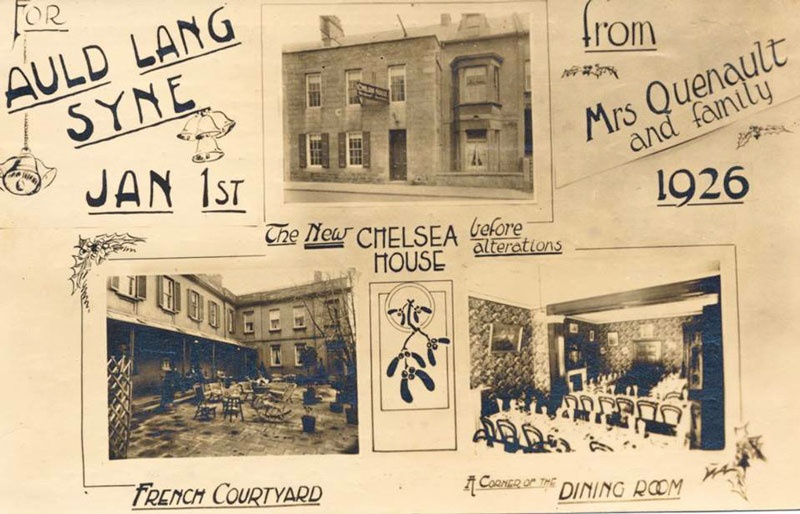 FOR
AULD LANG
SYNE
JAN 1ST
from
Mrs Quenault
and family
1926
The New CHELSEA
HOUSE
before
alterations
CHELSEA HOUSE
FRENCH COURTYARD
A CORNER OF THE DINING ROOM